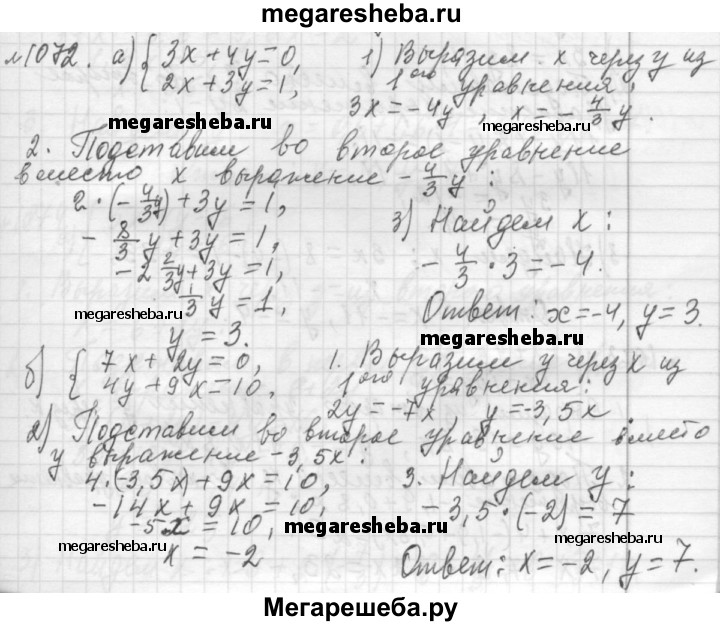 megaresheba.ru
№1072. а) { 3x+4y=0,
2x+3y=1,
1) Выразим x через y из
1ого уравнения:
3x=-4y, x=-4/3 y.
megaresheba.ru
megaresheba.ru
2. Подставим во второе уравнение
вместо x выражение -4/3 y:
2·(-4/3 y)+3y=1,
-8/3 y+3y=1,
-2 2/3 y+3y=1,
1/3 y=1,
y=3.
megaresheba.ru
3) Найдем x:
-4/3·3=-4.
Ответ: x=-4, y=3.
megaresheba.ru
б) { 7x+2y=0,
4y+9x=10.
1. Выразим y через x из
1ого уравнения:
2y=-7x, y=-3,5x.
2) Подставим во второе уравнение вместо
y выражение -3,5x:
4·(-3,5x)+9x=10,
-14x+9x=10,
-5x=10,
x=-2
megaresheba.ru
megaresheba.ru
3. Найдем y:
-3,5·(-2)=7
megaresheba.ru
Ответ: x=-2, y=7.
Мегарешеба.ру